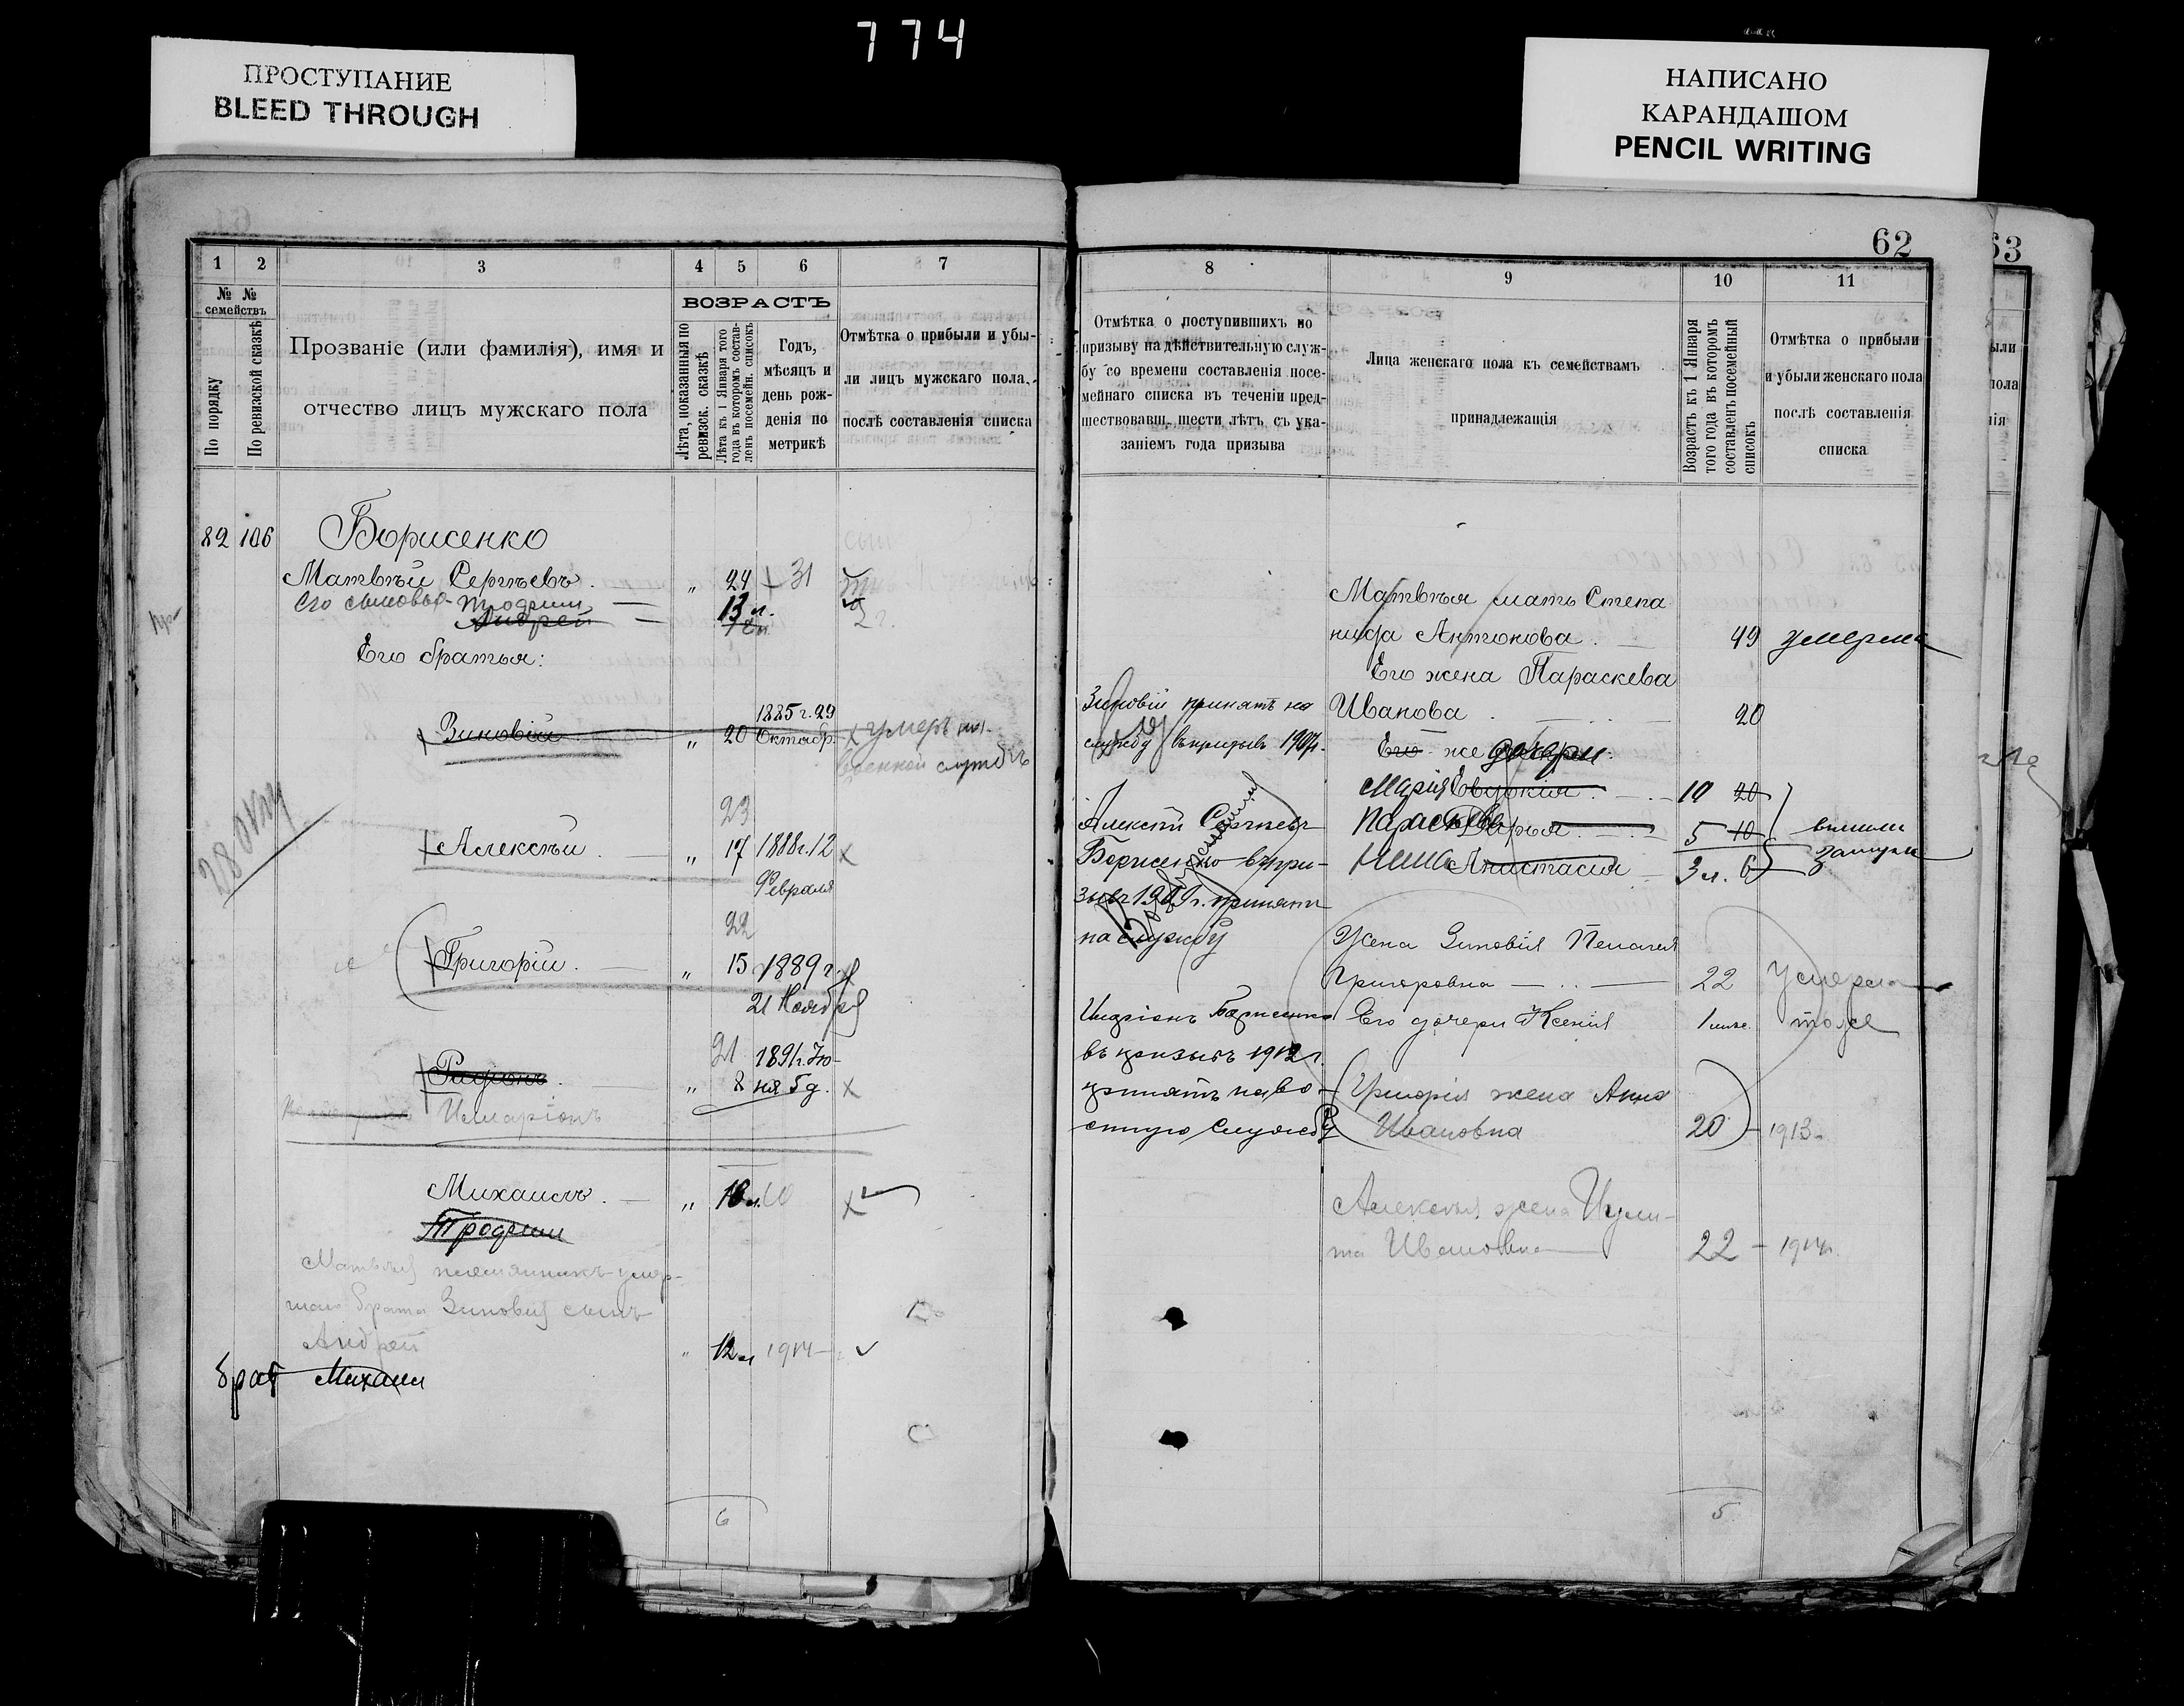 774
ПРОСТУПАНИЕ
BLEED THROUGH
НАПИСАНО
КАРАНДАШОМ
PENCIL WRITING
1 2 3 4 5 6 7
№ № семействъ
По порядку
По ревизской сказкѣ
Прозваніе (или фамилія), имя и
отчество лицъ мужскаго пола
ВОЗРАСТЪ
Лѣта, показанныя по
ревизск. сказкѣ
Лѣта къ 1 Января того
года въ которомъ состав-
ленъ посемейн. списокъ
Годъ,
мѣсяцъ и
день рож-
денія по
метрикѣ
Отмѣтка о прибыли и убы-
ли лицъ мужскаго пола,
послѣ составленія списка
82 106 Борисенко
Матвѣй Сергѣевъ „ 24 31
Его сыновья Трофим 13 л.
Андрей 2 г.
Его братья:
1885 г. 29
Зиновій „ 20 Октябр. умеръ на
военной службѣ
28 окт
23
Алексѣй „ 17 1888 г. 12
Февраля
22
Григорій „ 15 1889 г.
21 Ноябр
21 1891 г. Ію-
Родіонъ „ 8 ня 5 д.
Иларіонъ
Михаилъ „ 18 л.
Трофим
Матвѣя племянникъ умер-
шаго брата Зиновія сынъ
Андрей „ 12 л 1914
брат Михаил
6
62
63
8 9 10 11
Отмѣтка о поступившихъ по
призыву на дѣйствительную служ-
бу со времени составленія посе-
мейнаго списка въ теченіи пред-
шествовавш. шести лѣтъ съ ука-
заніемъ года призыва
Лица женскаго пола къ семействамъ
принадлежащія
Возрастъ къ 1 Января
того года въ которомъ
составленъ посемейный
списокъ
Отмѣтка о прибыли
и убыли женскаго пола
послѣ составленія
списка
Матвѣя мать Степа
нида Антонова 49 умерла
Его жена Параскева
Зиновій принятъ на Иванова 20
службу въ призывъ 1907 г. Его же дочери:
Марія Евдокія 10 20
Алексѣй Сергѣевъ Параскева Дарья 5 10 вышли
Борисенко въ при- Нина Анастасія 3 л. 6 замужъ
зывъ 1909 г. принятъ
на службу Жена Зиновія Пелагея
Григоровна 22 Умерла
Иларіонъ Борисенко Его дочери Ксенія 1 тоже
въ призывъ 1912 г.
принятъ на во- Григорія жена Анна
енную службу Ивановна 20 1913
Алексѣя жена Иули-
та Ивановна 22 1914 г.
5